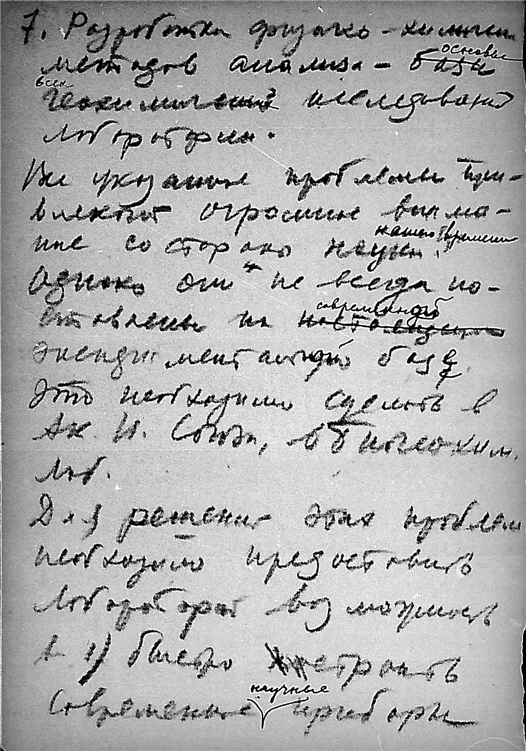 7. Разработка физико-химичес
методов анализа – базы основы
всех геохимической исследований
лаборатории.
Все указанные проблемы при-
влекают огромные внима-
ние со стороны науки нашего времени.
Однако они не всегда по-
ставлены на настоящую современной
экспериментальной базе.
Это необходимо сделать в
Ак. Н. Союза, в биогеохим.
лаб.
Для решения этих проблем
необходимо предоставить
лаборатории возможность
1) быстро строить
современные научные приборы